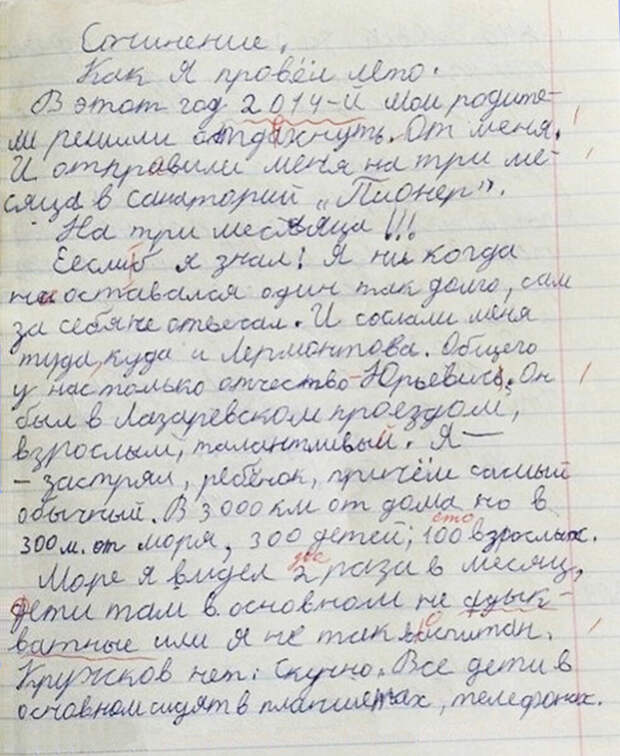 Сочинение.
Как я провёл лето.
В этот год 2014-й мои родите-
ли решили отдохнуть. От меня.
И отправили меня на три ме-
сяца в санаторий „Пионер".
На три месяца!!!
Если б я знал! Я ни когда
не оставался один так долго, сам
за себя не отвечал. И сослали меня
туда, куда и Лермонтова. Общего
у нас только отчество - Юрьевич. Он
был в Лазаревском проездом,
взрослый, талантливый. Я —
- застрял, ребёнок, причём самый
обычный. В 3000 км от дома но в
300 м. от моря, 300 детей; 100 взрослых.
сто
Море я видел 2 раза в месяц,
два
дети там в основном не адык-
ватные или я не так воспитан.
Кружков нет. Скучно. Все дети в
основном сидят в планшетах, телефонах.